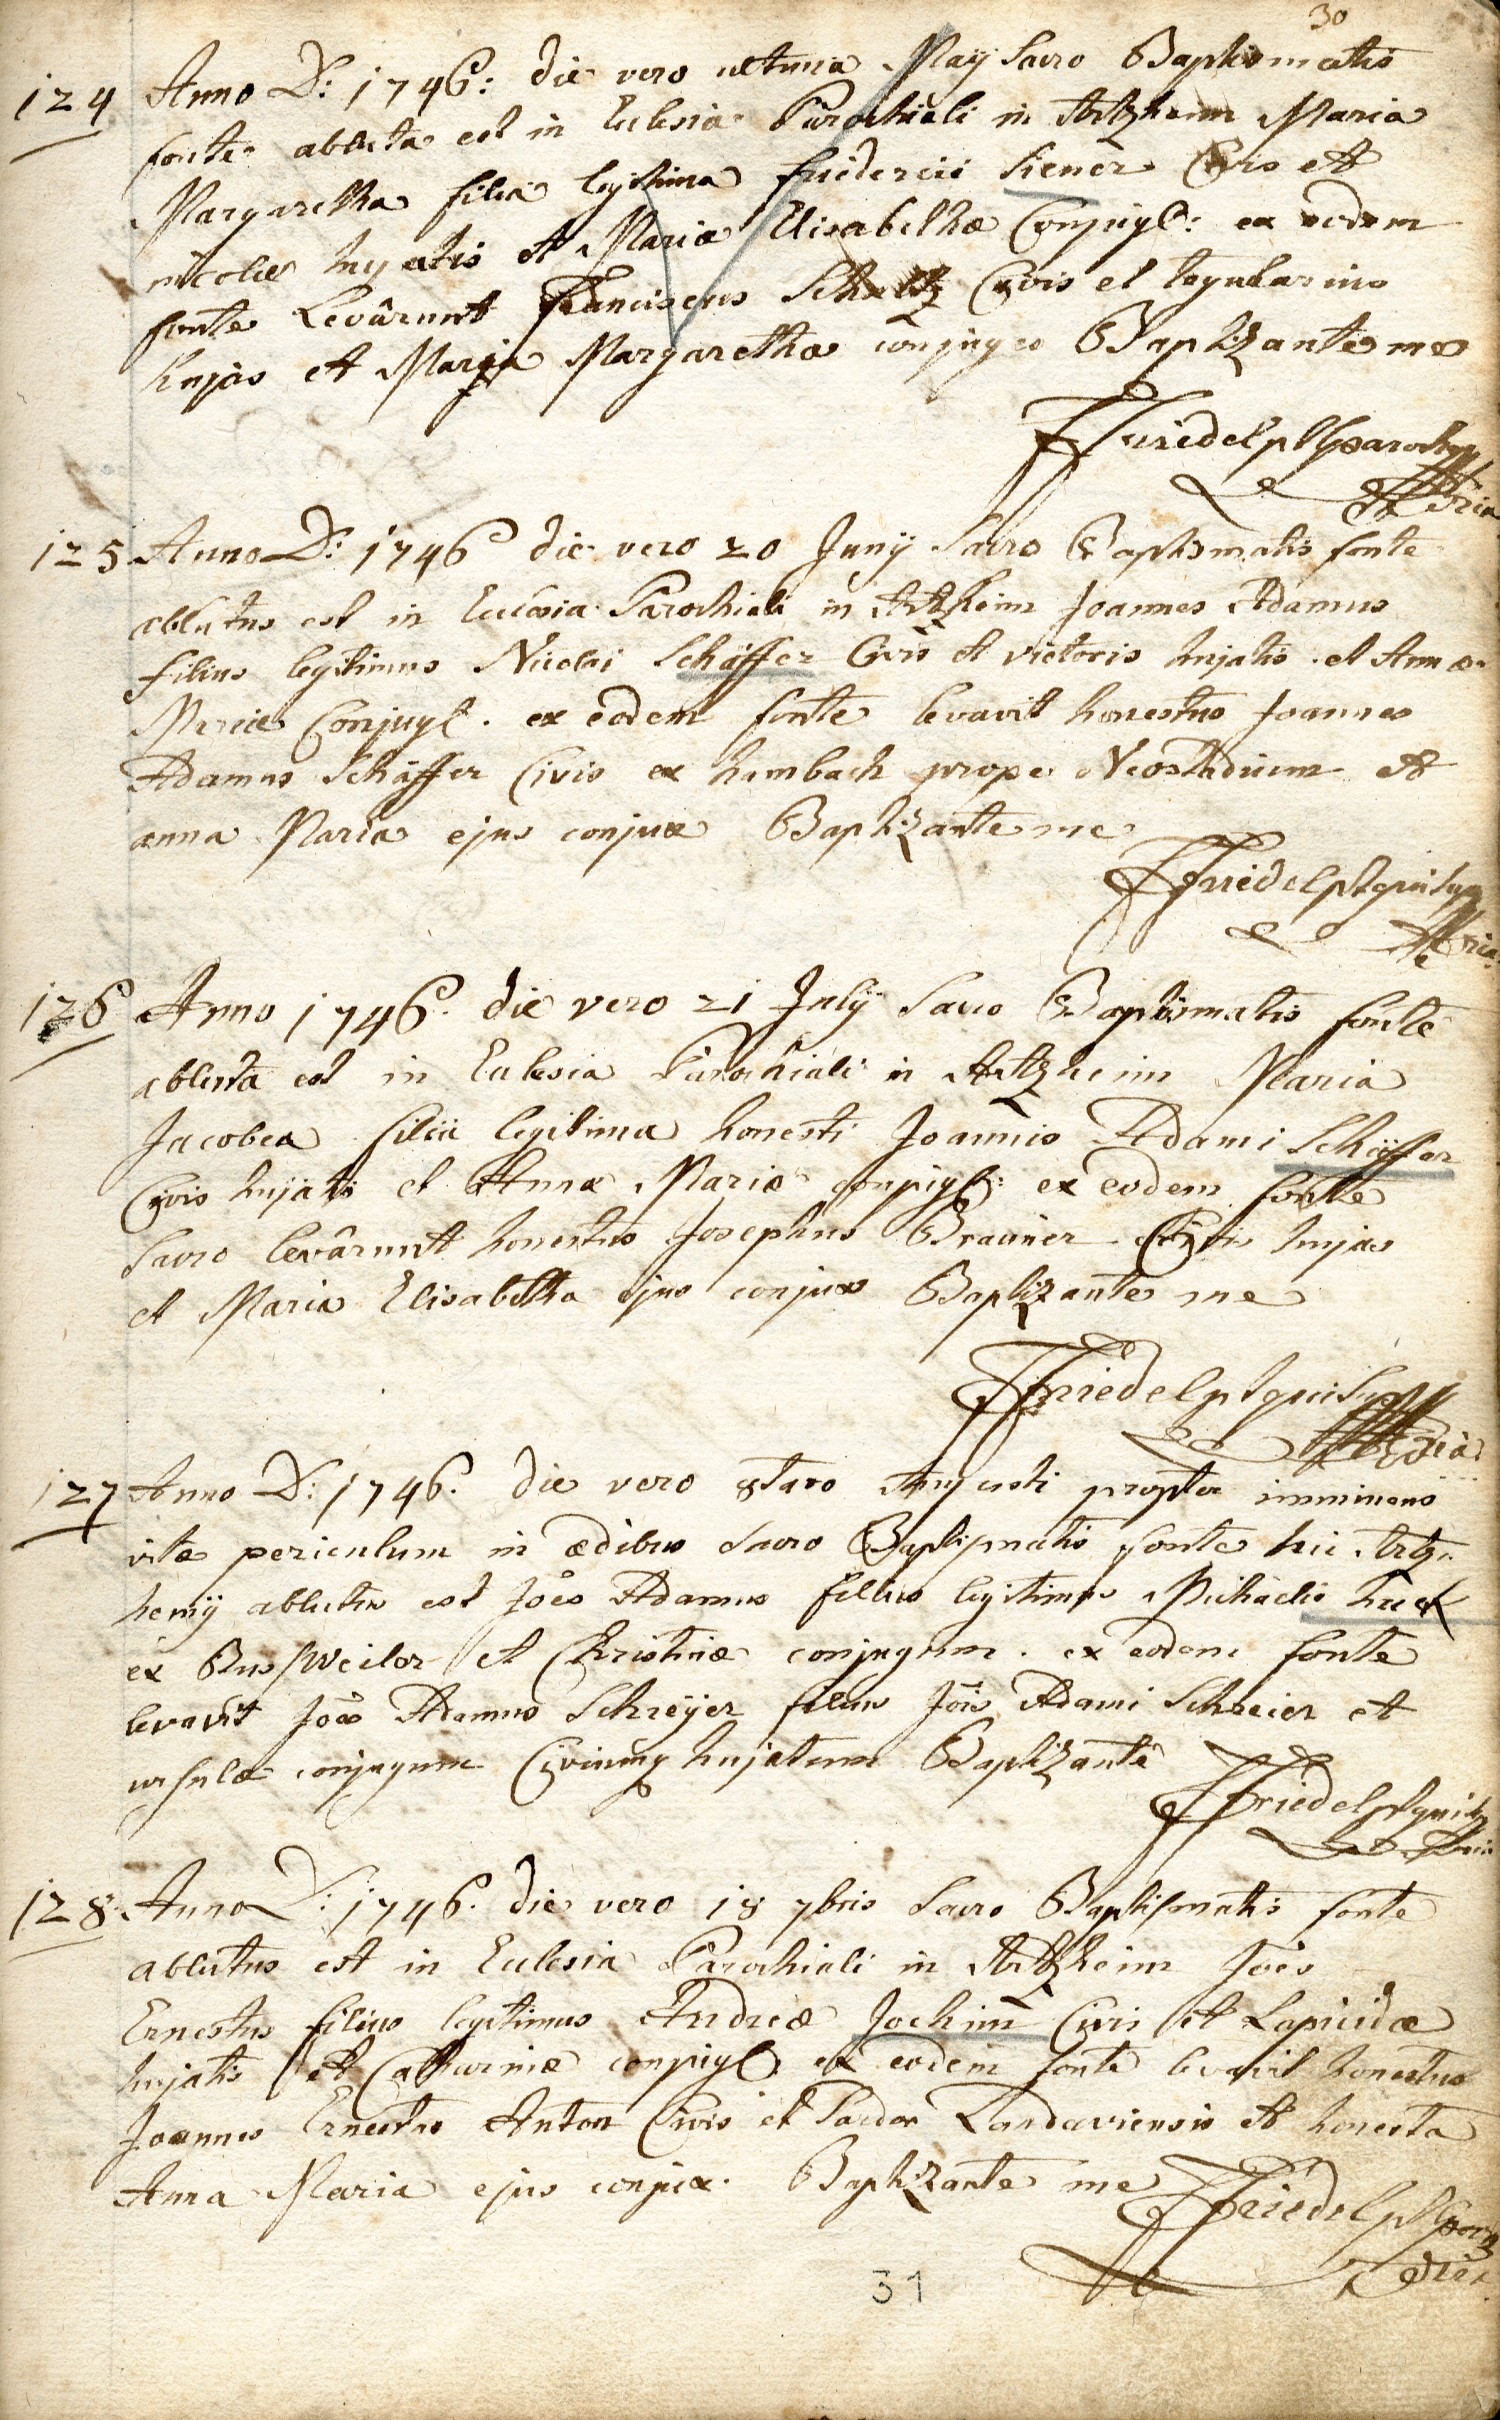 30
124 Anno D: 1746: die vero ultima Maÿ Sacro Baptismatis
fonte abluta est in Eclesia Parochiali in Artzheim Maria
Margaretha filia legitima Friderici Siener Civis et
incolæ hujatis et Mariæ Elisabethæ Conjug: ex eodem
fonte Levârunt Franciscus Civis et
hujas et Maria Margaretha conjuges Baptizante me
Friedel
125 Anno D: 1746 die vero 20 Junÿ Sacro Baptismatis fonte
ablutus est in Eclesia Parochiali in Artzheim Joannes Adamus
filius legitimus Nicolai Schäffer Civis et vietoris hujatis et Annæ
Mariæ Conjug: ex eodem fonte levavit honestus Joannes
Adamus Schäffer Civis ex hambach prope Neostadium et
anna Maria ejus conjux Baptizante me
Friedel
126 Anno 1746. die vero 21 Julÿ Sacro Baptismatis fonte
abluta est in Eclesia Parochiali in Artzheim Maria
Jacobea filia legitima honesti Joannis Adami Schäffer
Civis hujatis et Annæ Mariæ conjug: ex eodem fonte
Sacro levârunt honestus Josephus Brauner Civis hujas
et Maria Elisabetha ejus conjux Baptizante me
Friedel
127 Anno D: 1746. die vero 8tavo Augusti propter imminens
vitæ periculum in ædibus Sacro Baptismatis fonte hic Artz-
hemÿ ablutus est Joês Adamus filius legitimus Michaelis
ex et Christinæ conjugum. ex eodem fonte
levavit Joês Adamus Schreÿer filius Jois Adami Schreier et
ursulæ conjugum Civium hujatum Baptizante
Friedel
128. Anno D: 1746. die vero 18 7bris Sacro Baptismatis fonte
ablutus est in Eclesia Parochiali in Artzheim Joês
Ernestus filius legitimus Andreæ Jochim Civis et Lapicidæ
hujatis et Catharinæ conjug: ex eodem fonte levavit honestus
Joannes Ernestus Anton Civis et Landaviensis et honesta
Anna Maria ejus conjux. Baptizante me
Friedel
31